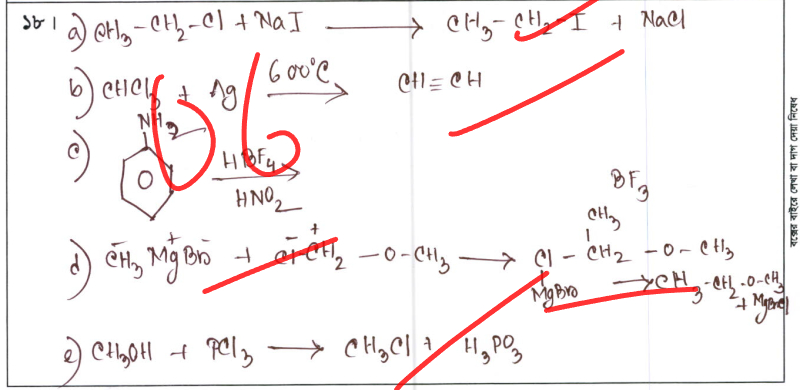 ১৮। a) CH3-CH2-Cl + NaI ⟶ CH3-CH2-I + NaCl
b) CHCl3 + Ag 600°C ⟶ CH≡CH
c) NH2 HBF4 ⟶ HNO2
BF3
CH3
d) CH3 MgBr + Cl-CH2-O-CH3 ⟶ Cl-CH2-O-CH3
MgBr ⟶ CH3-CH2-O-CH3
+ MgBrCl
e) CH3OH + PCl3 ⟶ CH3Cl + H3PO3
বক্সের বাইরে লেখা বা দাগ দেয়া নিষেধ